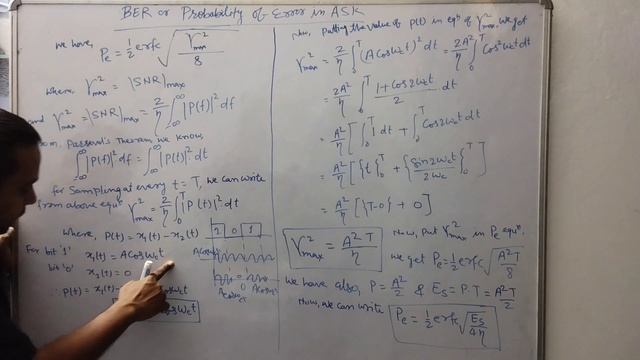 BER or Probability of Error in ASK
We have, Pe = 1/2 erfc √(γ²max / 8)
Where, γ²max = |SNR|max
and γ²max = |SNR|max = 2/η ∫∞ ∞ |P(f)|² df
Theorem, we know,
∫∞ ∞ |P(f)|² df = ∫∞ ∞ |P(t)|² dt
for Sampling at every t = T, we can write
from above equⁿ γ²max = 2/η ∫₀ᵀ |P(t)|² dt
Where, P(t) = x₁(t) − x₂(t)
1 0 1
For bit '1' x₁(t) = A cos ωc t
bit '0' x₂(t) = 0
∴ P(t) = x₁(t)
cos ωc t
Putting the value of P(t) in equⁿ of γ²max, we get
γ²max = 2/η ∫₀ᵀ (A cos ωc t)² dt = 2A²/η ∫₀ᵀ cos² ωc t dt
= 2A²/η ∫₀ᵀ (1 + cos 2ωc t)/2 dt
= A²/η [∫₀ᵀ 1 dt + ∫₀ᵀ cos 2ωc t dt]
= A²/η [{t}₀ᵀ + {sin 2ωc t / 2ωc}₀ᵀ]
= A²/η [(T-0) + 0]
γ²max = A² T / η
Now, put γ²max in Pe equⁿ.
we get Pe = 1/2 erfc √(A² T / 8
we have also, P = A²/2 & Es = P·T = A² T/2
Now, we can write Pe = 1/2 erfc √(Es / 4η)